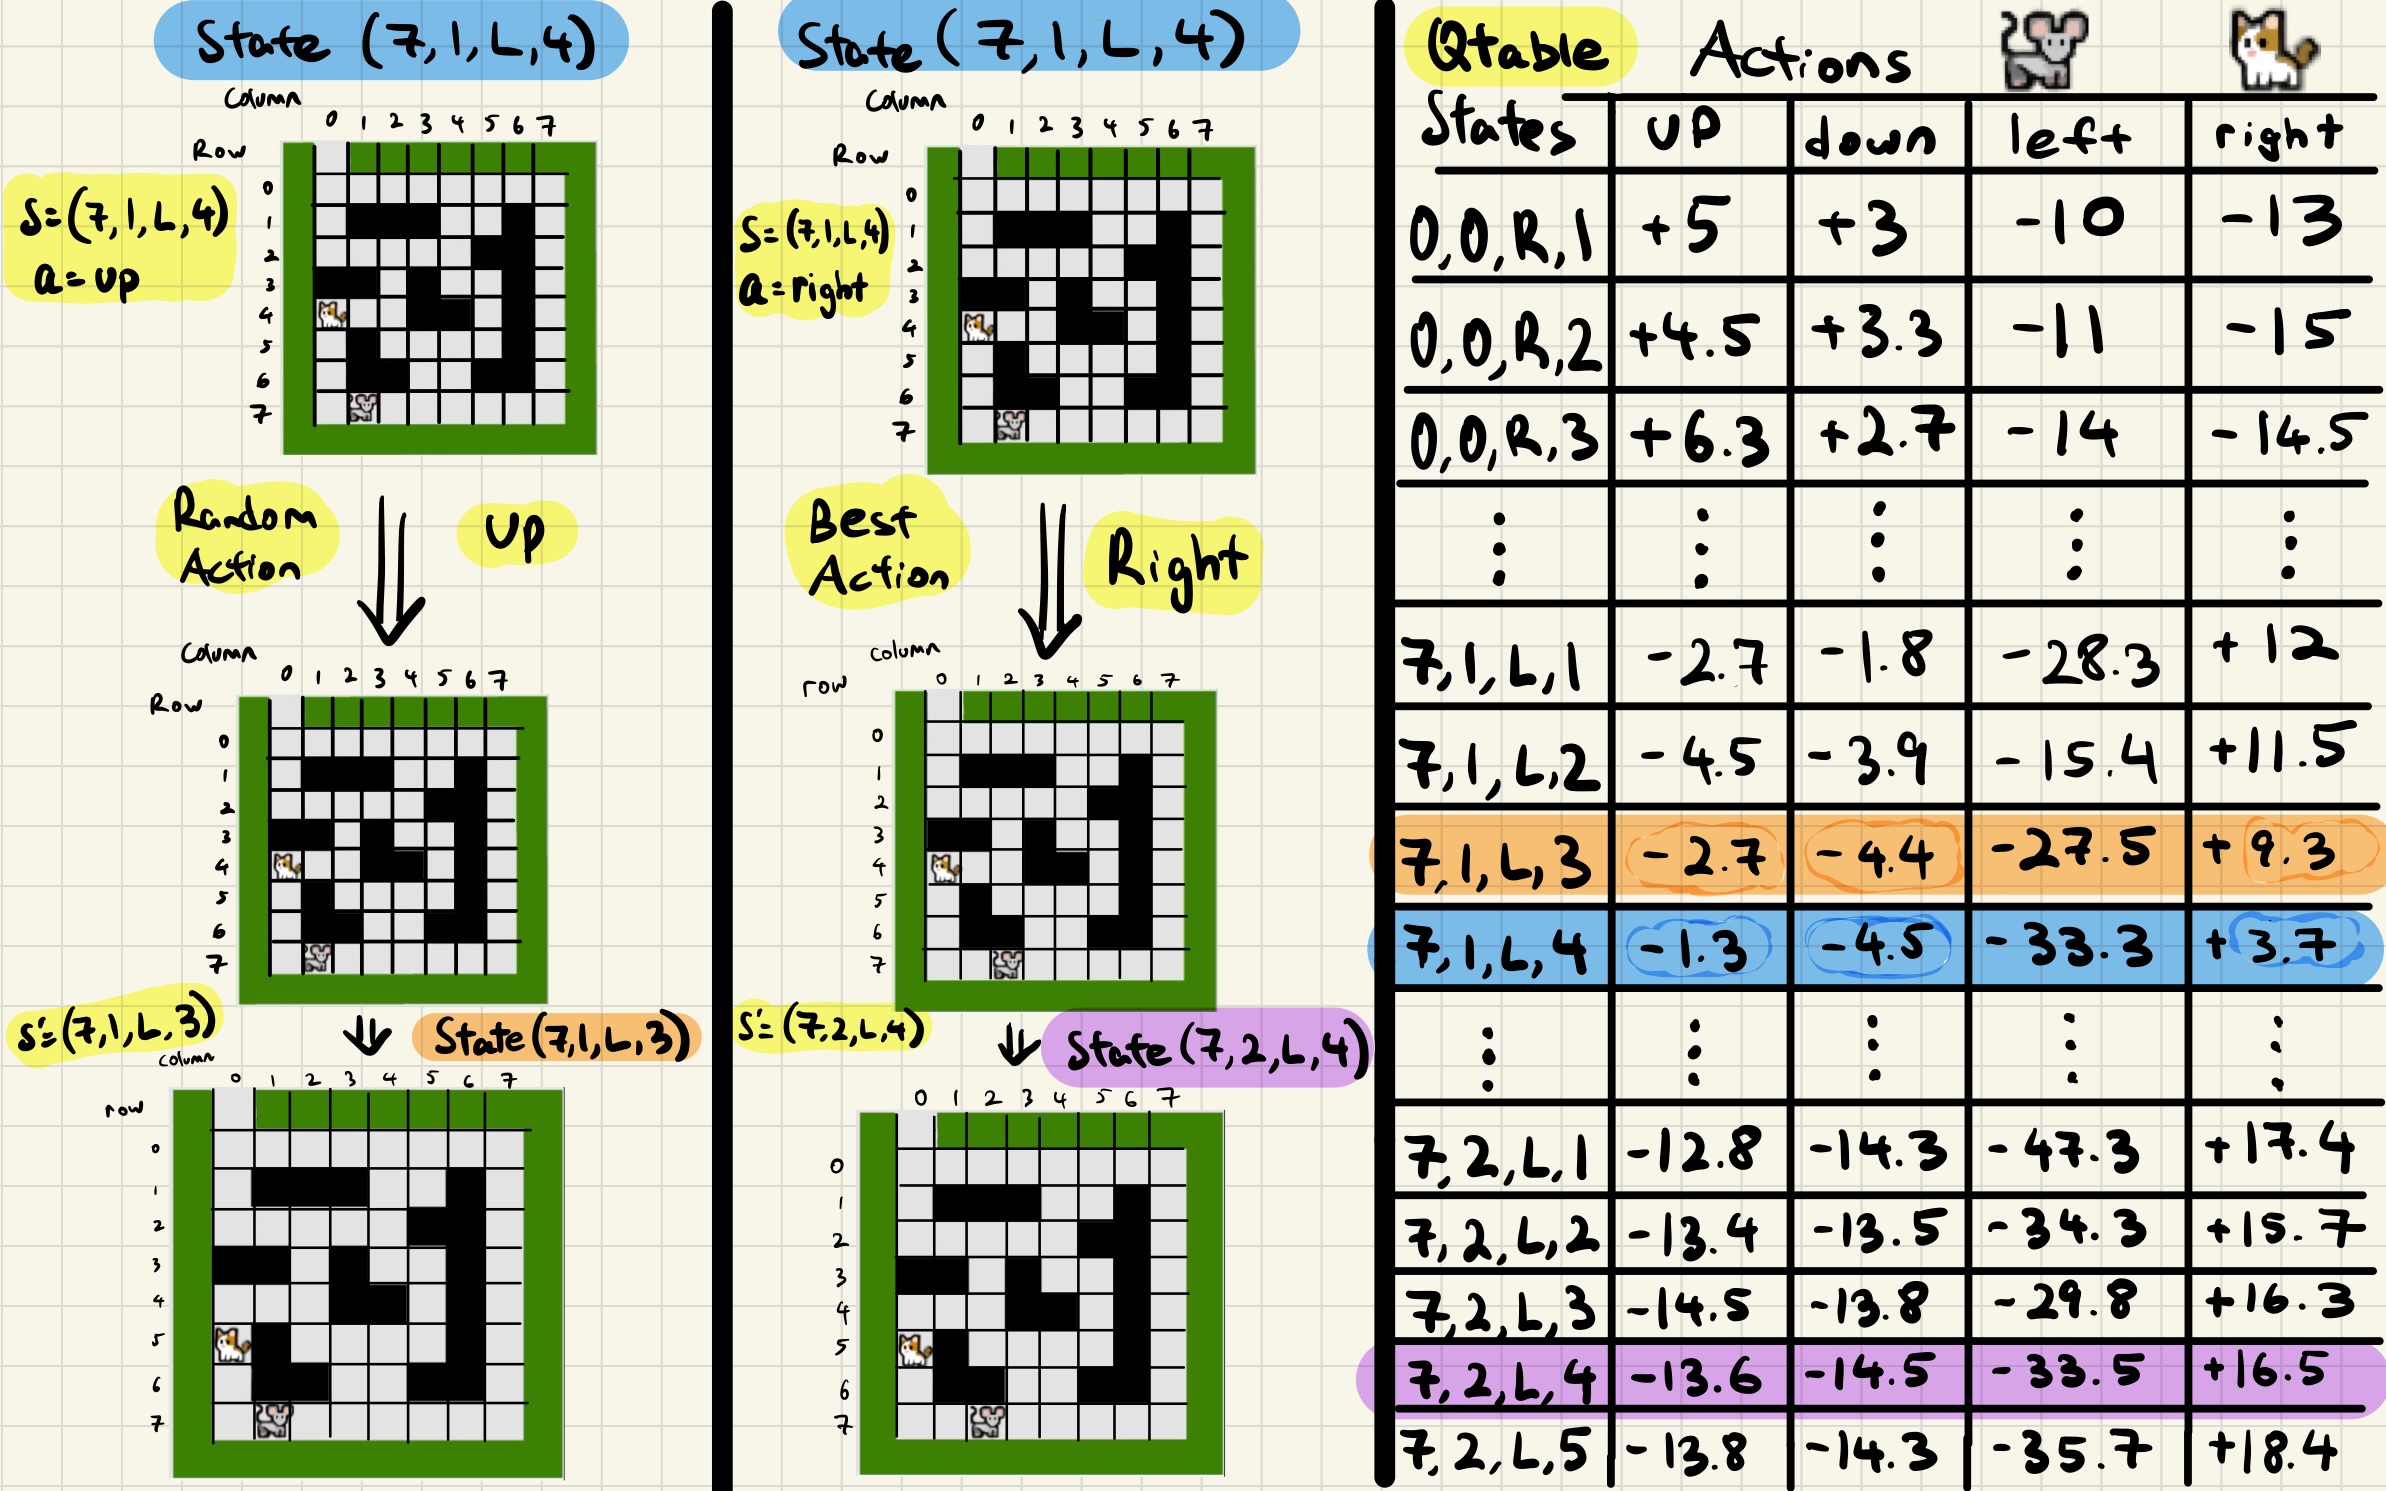 State (7,1,L,4)
Column
0 1 2 3 4 5 6 7
Row
0
1
2
3
4
5
6
7
S=(7,1,L,4)
a=up
Random
Action
Up
Column
0 1 2 3 4 5 6 7
Row
0
1
2
3
4
5
6
7
S'=(7,1,L,3)
State(7,1,L,3)
column
0 1 2 3 4 5 6 7
row
0
1
2
3
4
5
6
7
State (7,1,L,4)
Column
0 1 2 3 4 5 6 7
Row
0
1
2
3
4
5
6
7
S=(7,1,L,4)
a=right
Best
Action
Right
column
0 1 2 3 4 5 6 7
row
0
1
2
3
4
5
6
7
S'=(7,2,L,4)
State(7,2,L,4)
0 1 2 3 4 5 6 7
0
1
2
3
4
5
6
7
Qtable Actions
States UP down left right
0,0,R,1 +5 +3 -10 -13
0,0,R,2 +4.5 +3.3 -11 -15
0,0,R,3 +6.3 +2.7 -14 -14.5
7,1,L,1 -2.7 -1.8 -28.3 +12
7,1,L,2 -4.5 -3.9 -15.4 +11.5
7,1,L,3 -2.7 -4.4 -27.5 +9.3
7,1,L,4 -1.3 -4.5 -33.3 +3.7
7,2,L,1 -12.8 -14.3 -47.3 +17.4
7,2,L,2 -13.4 -13.5 -34.3 +15.7
7,2,L,3 -14.5 -13.8 -29.8 +16.3
7,2,L,4 -13.6 -14.5 -33.5 +16.5
7,2,L,5 -13.8 -14.3 -35.7 +18.4